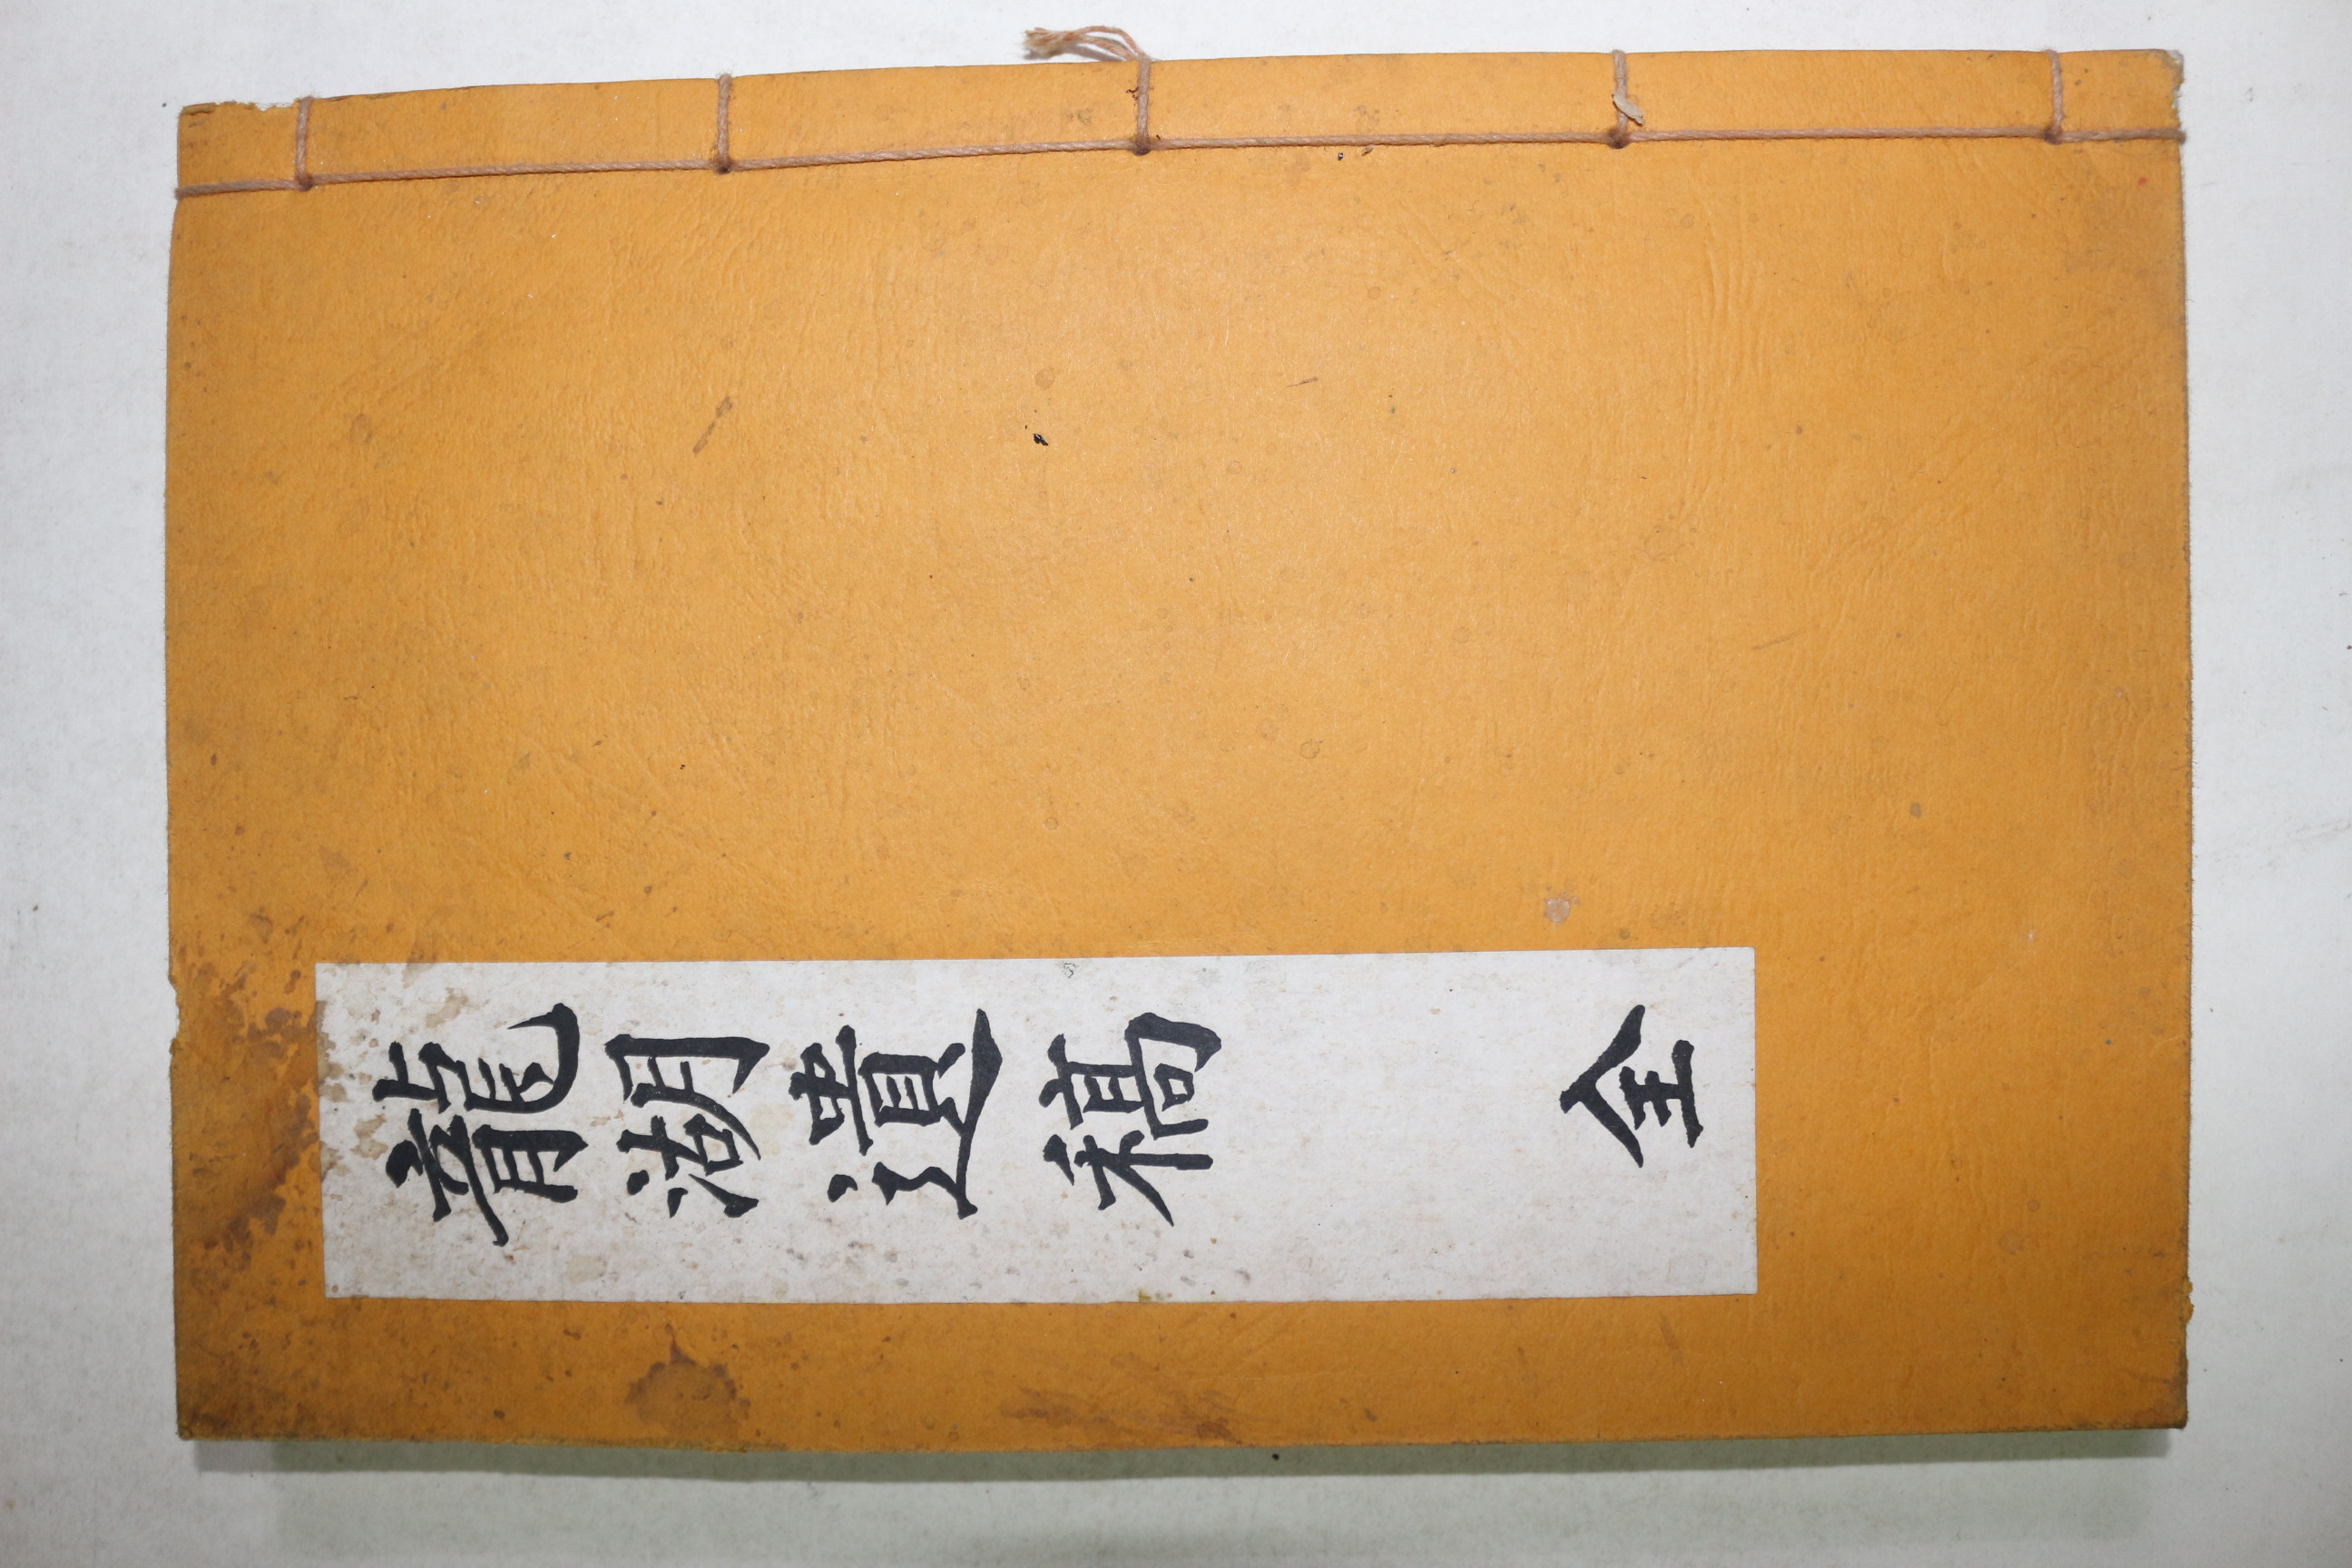 龍湖遺稿 全